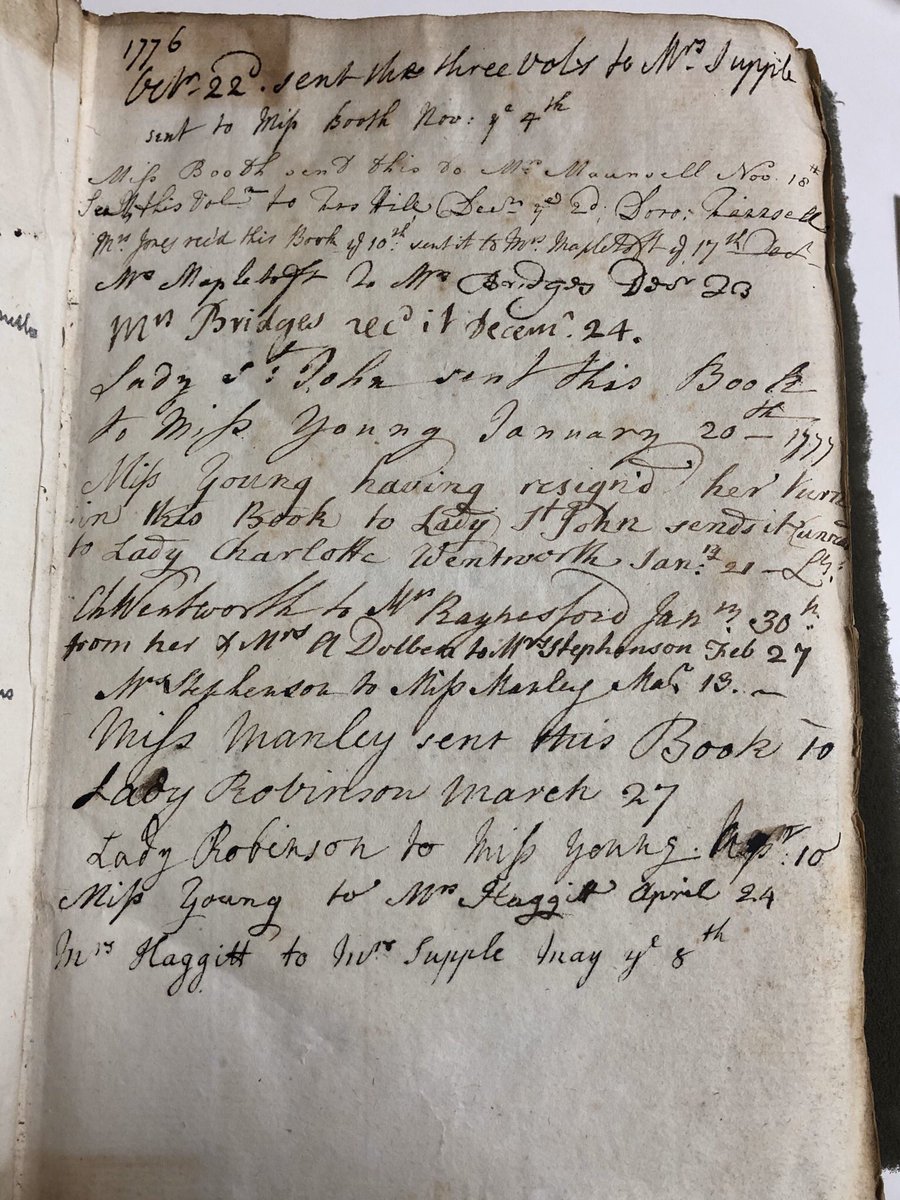 1776
Octr. 22d. sent the three Vols to Mrs Supple
sent to Miss Booth Nov: ye 4th
Miss Booth send this to Mrs Maunsell Nov. 18th
this Volm to Mrs Hill Decr ye 2d, Doro:
Mrs Jones rec'd this Book ye 10th sent it to Mrs Mapletoft ye 17th Decr
Mrs Mapletoft to Mrs Bridges Decr 23
Mrs Bridges recd it Decemr. 24.
Lady St: John sent this Book
to Miss Young January 20th 1777
Miss Young having resign'd her turn
in this Book to Lady St John sends it
to Lady Charlotte Wentworth Janry 21 – Ly:
Ch Wentworth to Mrs Raynesford Janry 30th
from her & Mrs A Dolben to Mrs Stephenson Feb 27
Mrs Stephenson to Miss Manley Mar 13. –
Miss Manley sent this Book to
Lady Robinson March 27
Lady Robinson to Miss Young. Apr: 10
Miss Young to Mrs Haggitt April 24
Mrs Haggitt to Mrs Supple May ye 8th